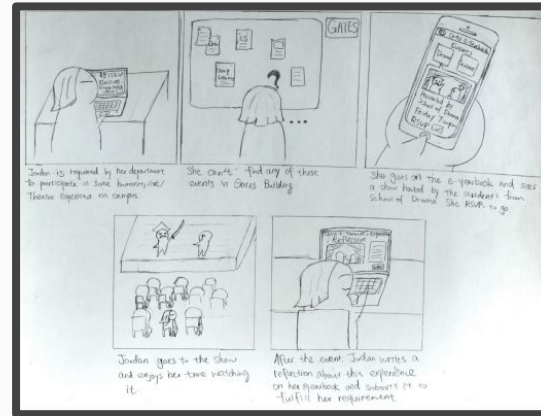 GATES
CS
Deep
Learning
Events
Drama
Presented by
School of Drama
Friday 7:00pm
RSVP
Jordan is required by her department
to participate in some humanity/art/
Theatre experience on campus
She can't find any of those
events in Gates Building
She goes on the e-yearbook and sees
a show hosted by the students from
School of Drama. She RSVPs to go
Reflection
Jordan goes to the show
and enjoys her time watching
it
After the event, Jordan writes a
reflection about this experience
on her yearbook and submits it to
fulfill her requirement